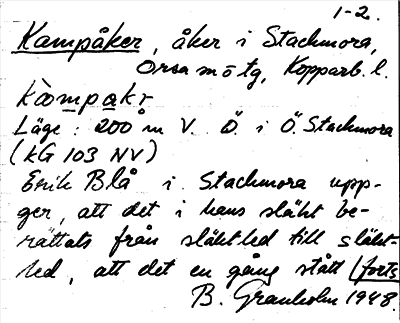 1-2.
Kampåker, åker i Stackmora,
Orsa m o tg, Kopparb. l.
kòmpakr
Läge: 200 m V. Ö. i Ö. Stackmora
(KG 103 NV)
Erik Blå i Stackmora upp-
ger, att det i hans släkt be-
rättats från släktled till släkt-
led, att det en gång stått (forts
B. Granholm 1948.